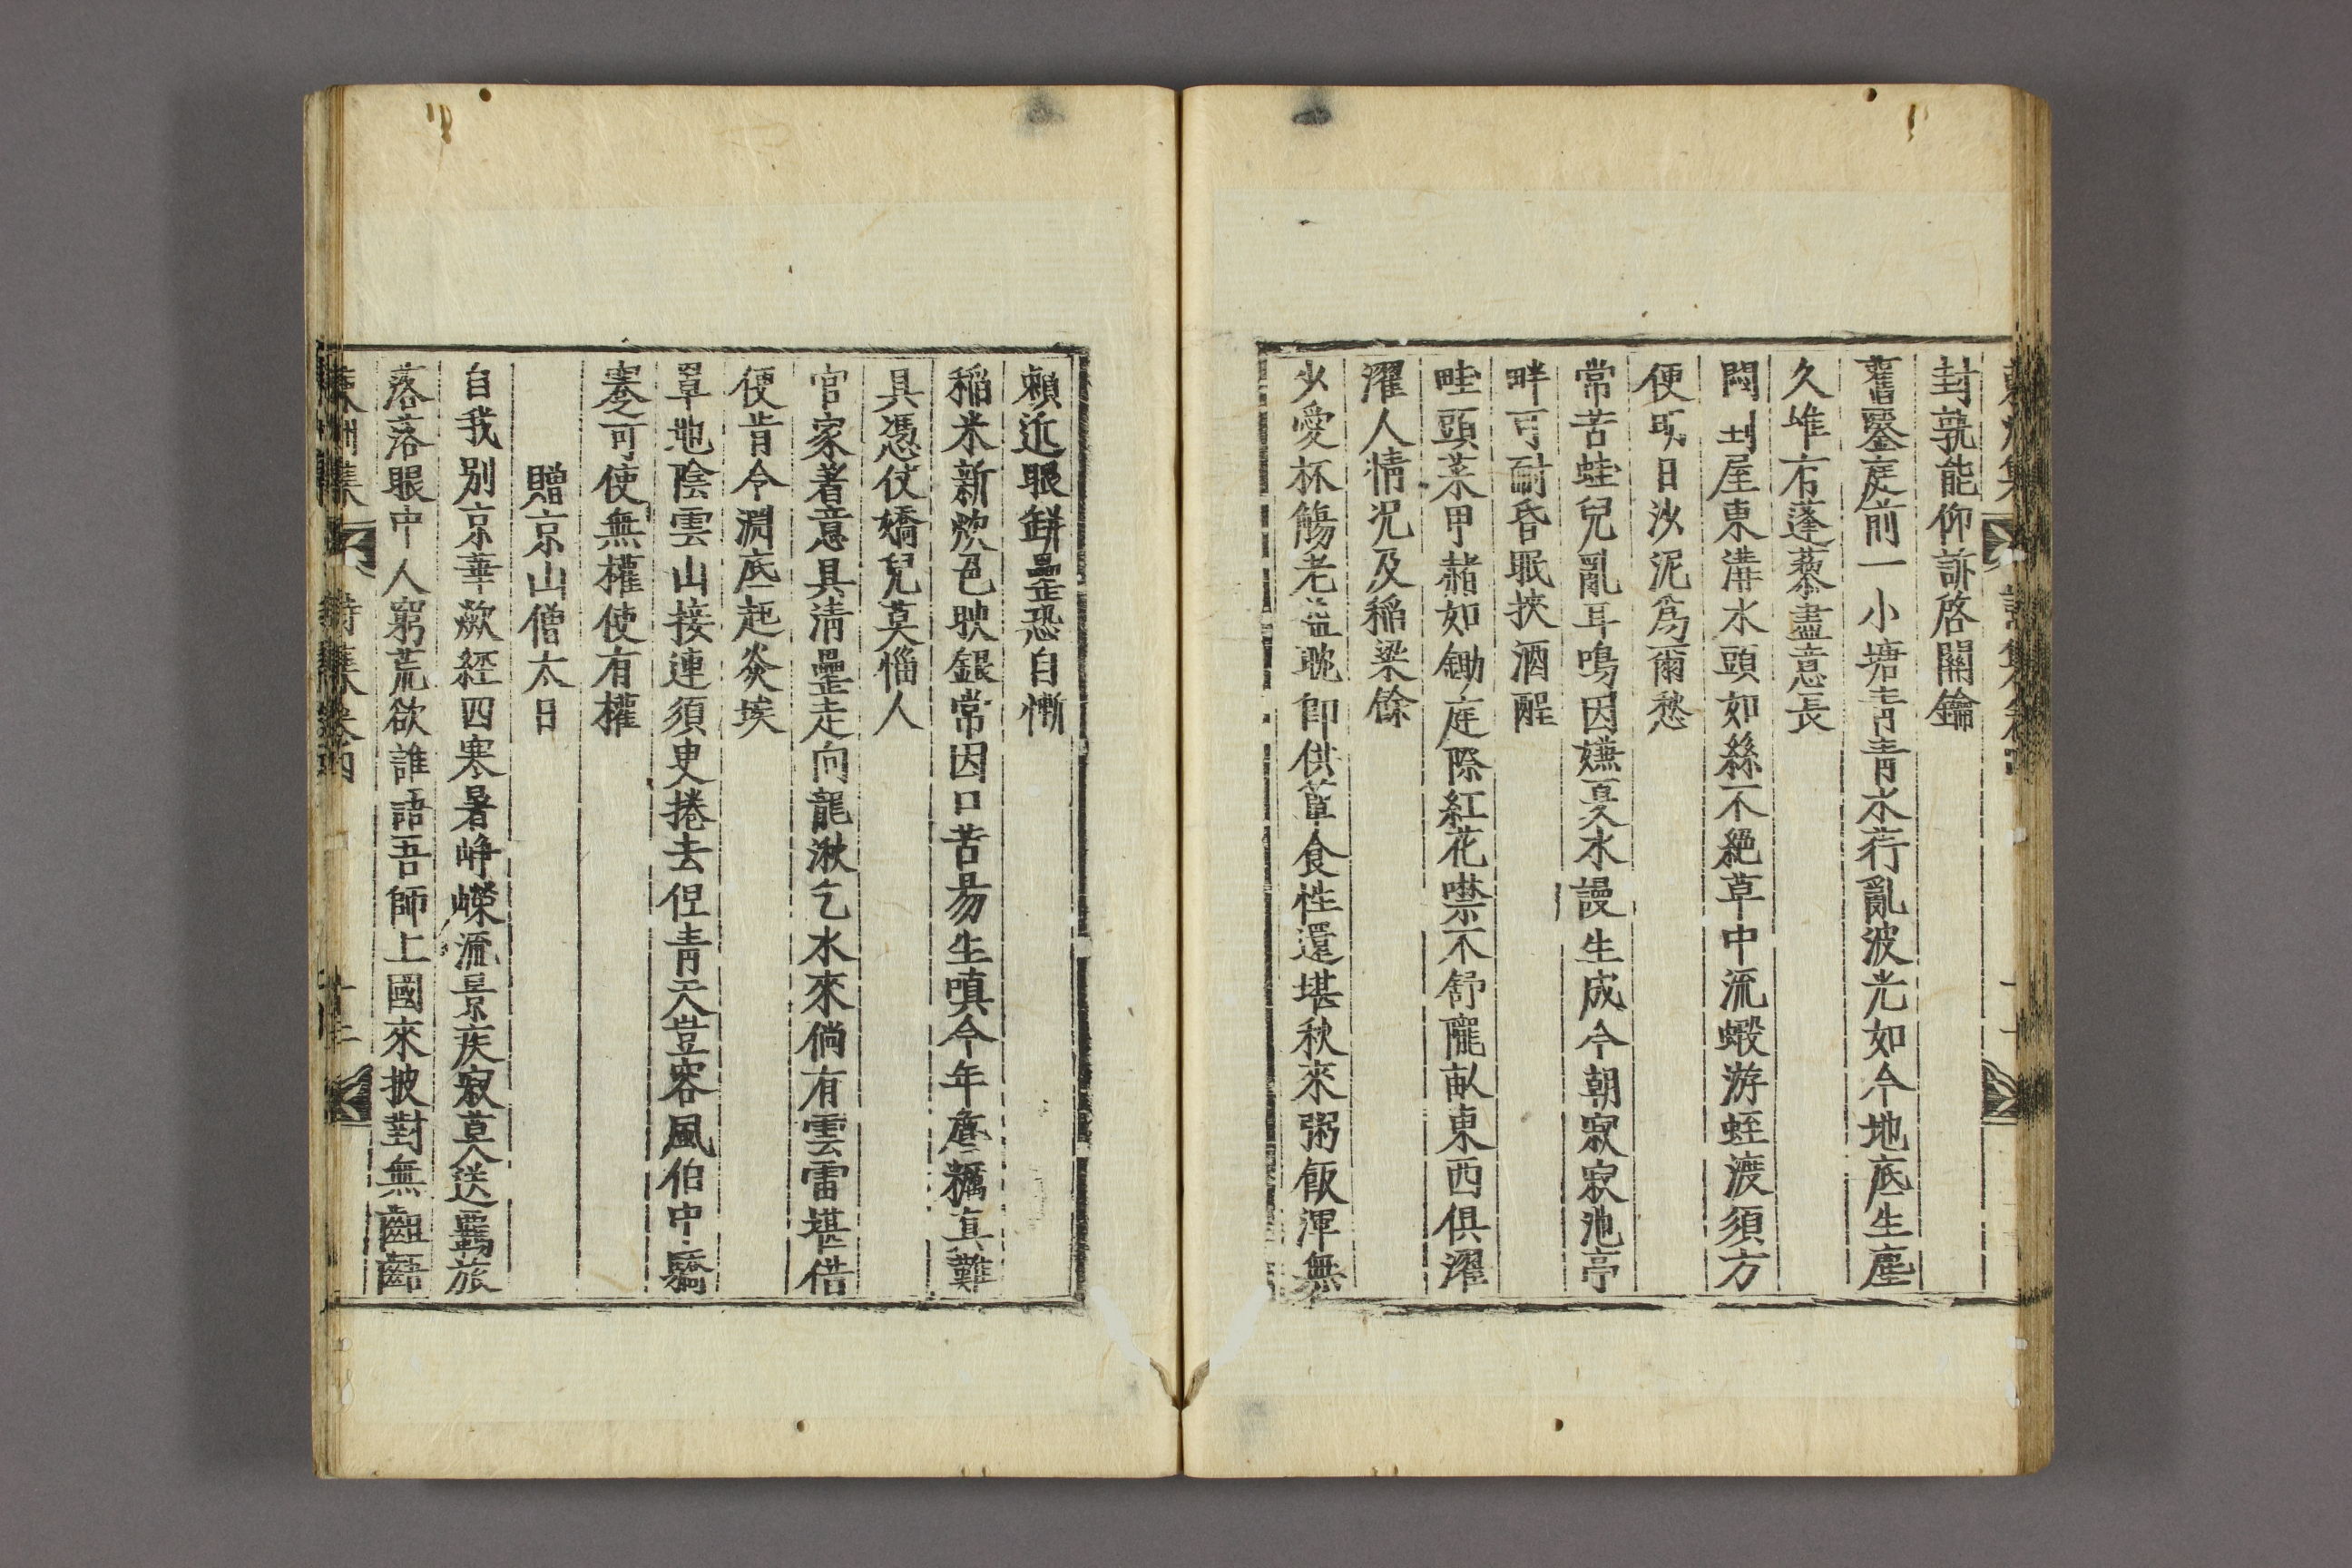 封孰能仰訴啓關鑰
舊鑿庭前一小塘青青水荇亂波光如今地底生塵
久堆石蓬藜盡意長
悶到屋東溝水頭如絲不絶草中流蝦游蛭渡須方
便明日沙泥爲爾愁
常苦蛙兒亂耳鳴因嫌夏水謾生成今朝寂寂池亭
畔可耐昏眠挾酒酲
畦頭菜甲赭如鋤庭際紅花噤不舒隴畝東西俱濯
濯人情况及稻粱餘
少愛杯觴老益耽卽供葷食性還堪秋來粥飯渾無
賴近眼缾罍恐自慚
稻米新炊色映銀常因口苦易生嗔今年麤糲眞難
具憑仗嬌兒莫惱人
官家著意具淸罍走向龍湫乞水來倘有雲雷堪借
便肯令淵底起炎埃
罩地陰雲山接連須臾捲去但靑天豈容風伯中驕
蹇可使無權使有權
贈京山僧太日
自我別京華歘經四寒暑崢嶸流景疾寂莫送羈旅
落落眼中人窮荒欲誰語吾師上國來披對無齟齬